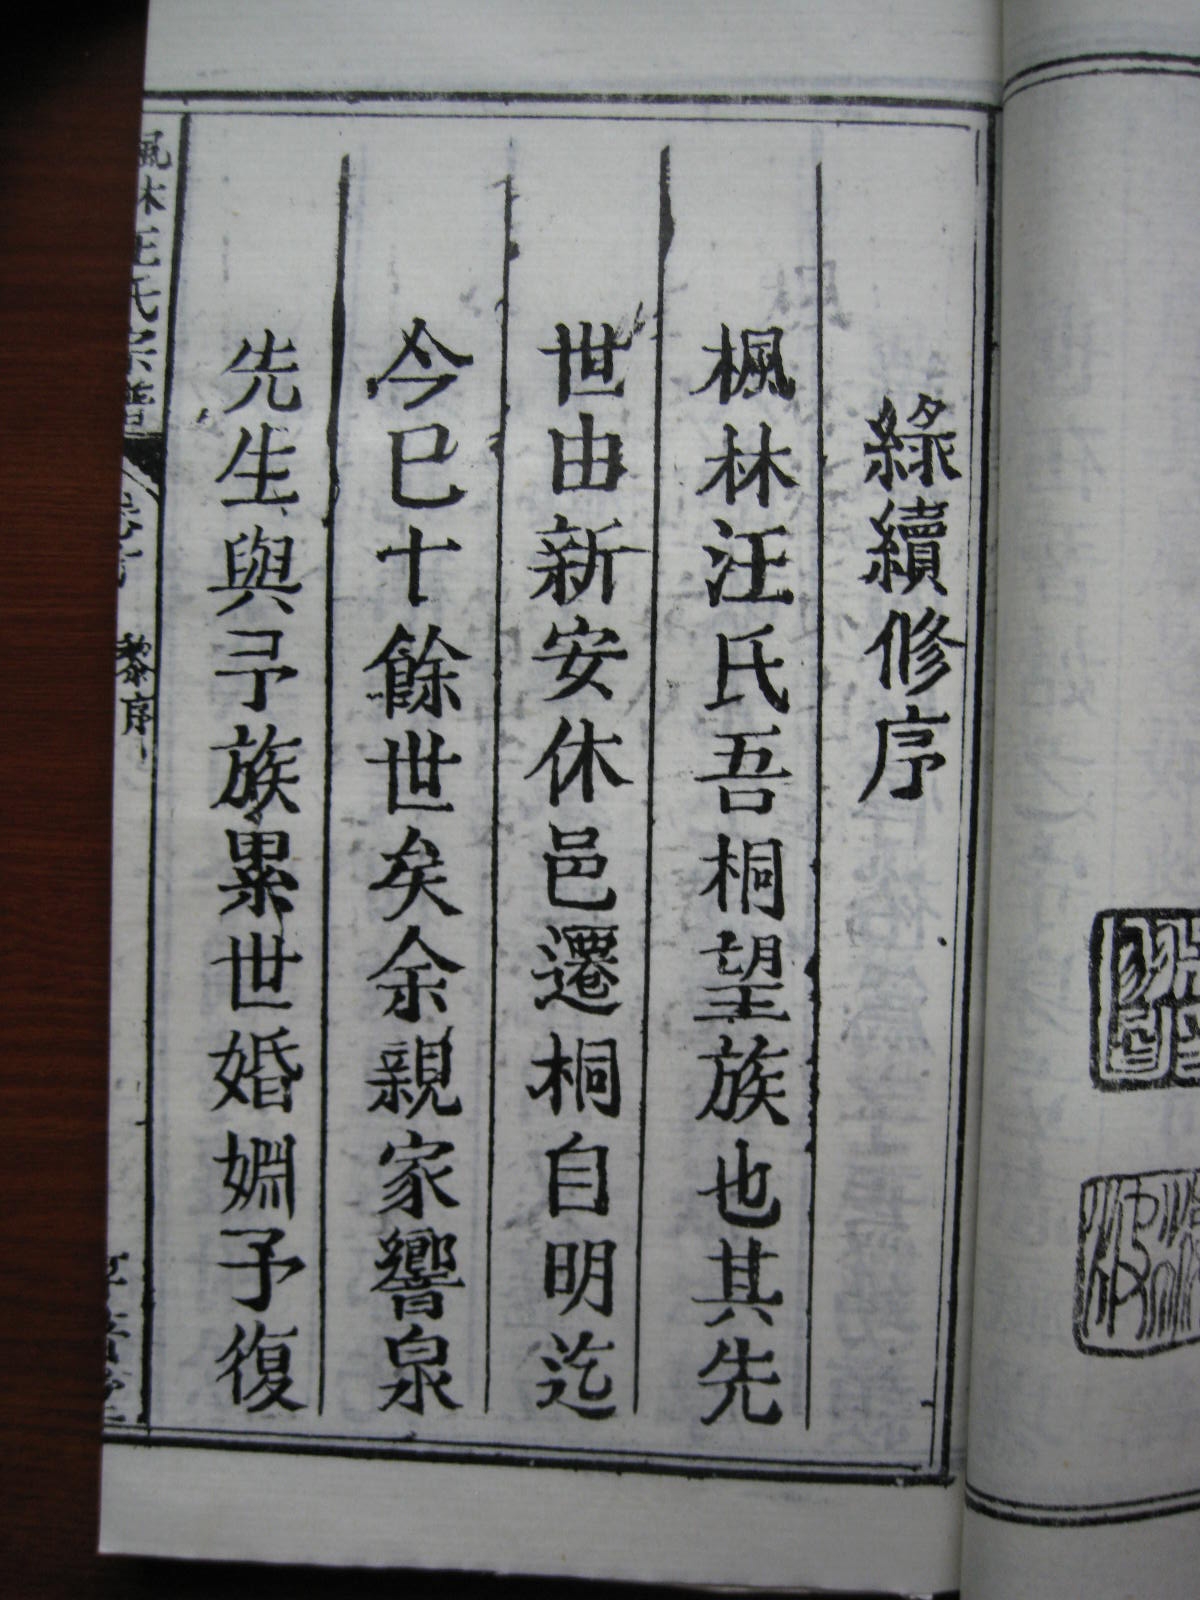 續修序
楓林汪氏吾桐望族也其先
世由新安休邑遷桐自明迄
今巳十餘世矣余親家響泉
先生與予族累世婚婣予復
楓林汪氏宗譜
序